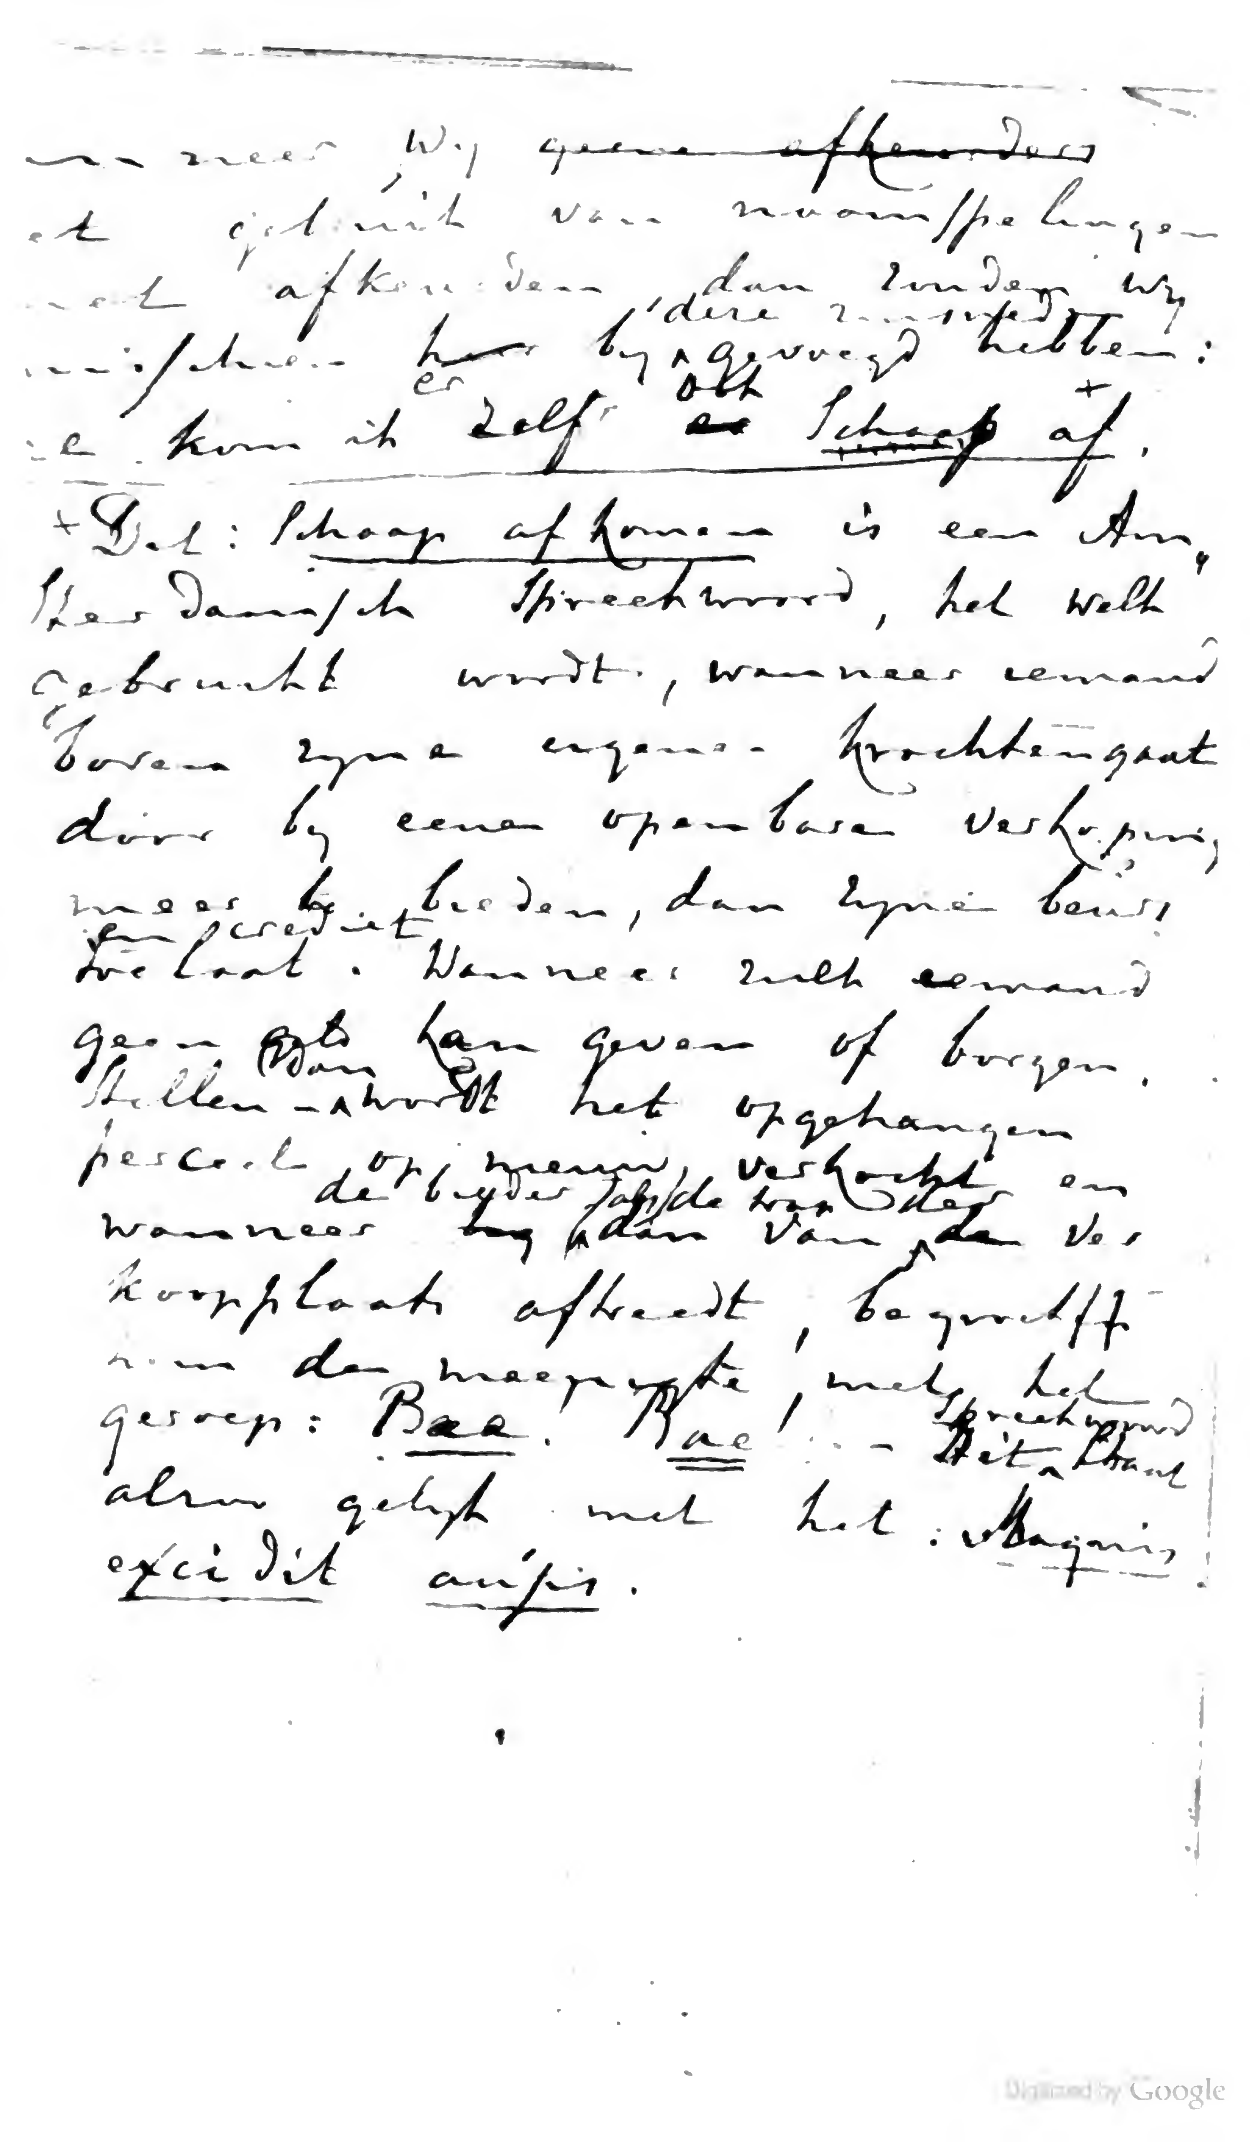 wanneer, Wy geene afkeurders
et gebruik van naamspelingen
niet afkeurden, dan zouden wy
misschien hier er by deze zinsnede gevoegd hebben:
kom ik zelf ook Schaap af. +
+ Het: Schaap afkomen is een Am„
sterdamsch Spreekwoord, het welk
gebruikt wordt, wanneer iemand
boven zyne eigenen krachten gaat
door by eenen openbaren verkoping
meer te bieden, dan zyne beurs
en crediet
toelaat. Wanneer zulk eemand
geen geld kan geven of borgen
Stellen – dan wordt het opgehangen
perceel op nieuw verkocht en
wanneer de bieder dan van der Ver
koopplaats aftreedt, begroett
men den met het
geroep: Bae! Bae! – Dit Spreekwoord staat
alzoo gelyk met het: Magnis
excidit ausis.
Digitized by Google